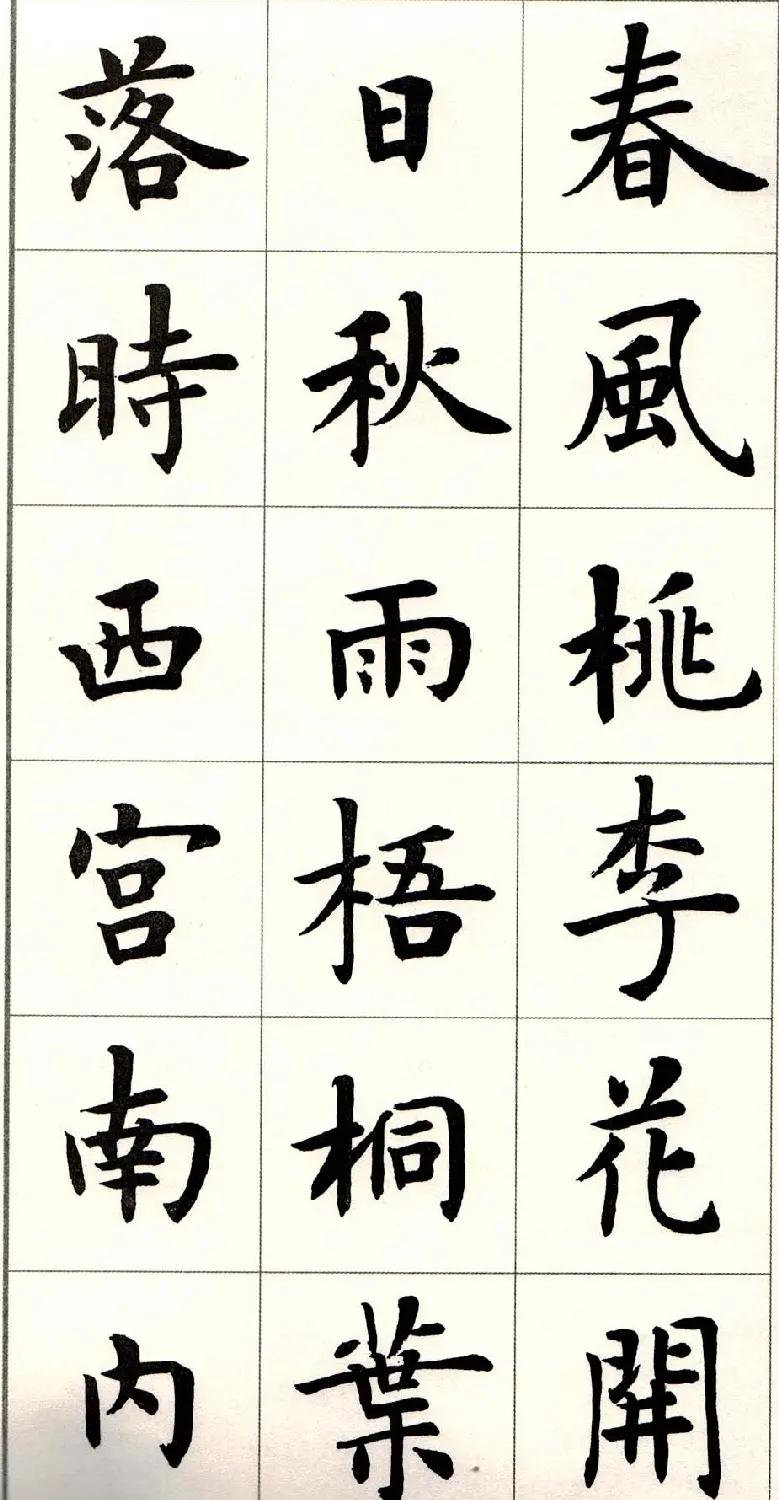 春風桃李花開
日秋雨梧桐葉
落時西宮南内